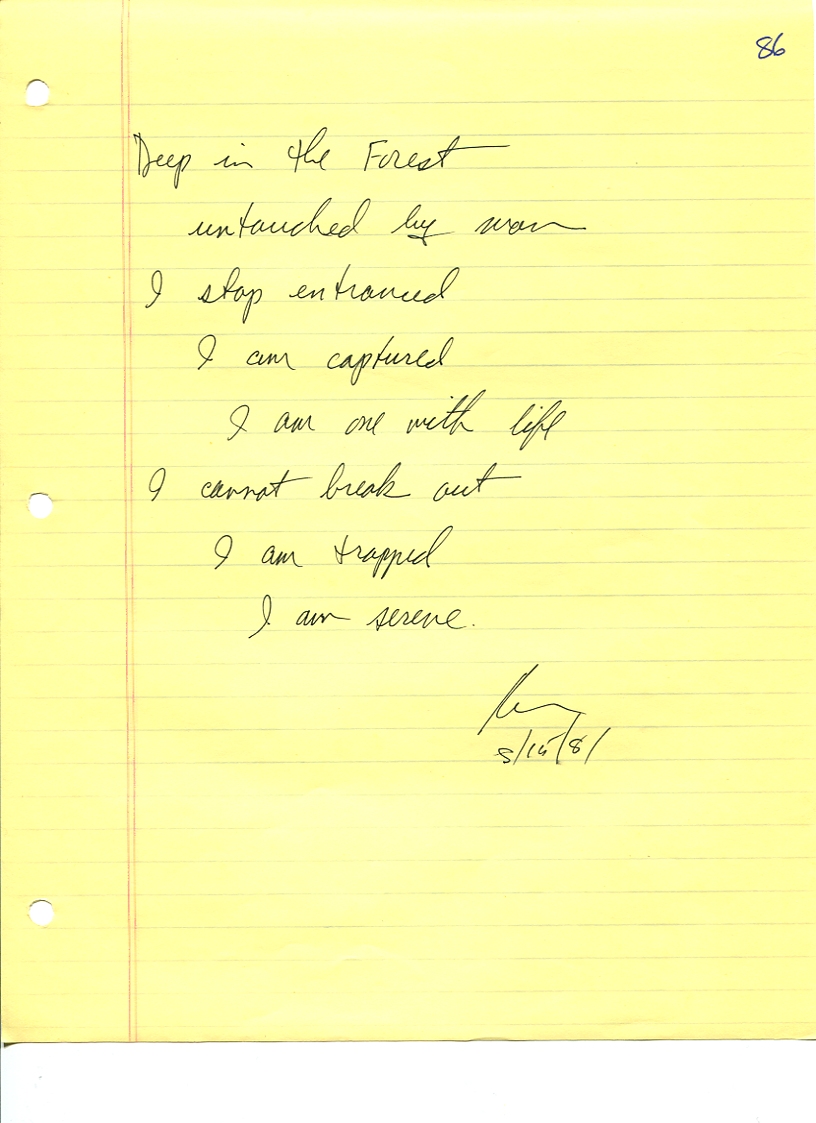 86
Deep in the Forest
untouched by man
I stop entranced
I am captured
I am one with life
I cannot break out
I am trapped
I am serene.
8/15/81